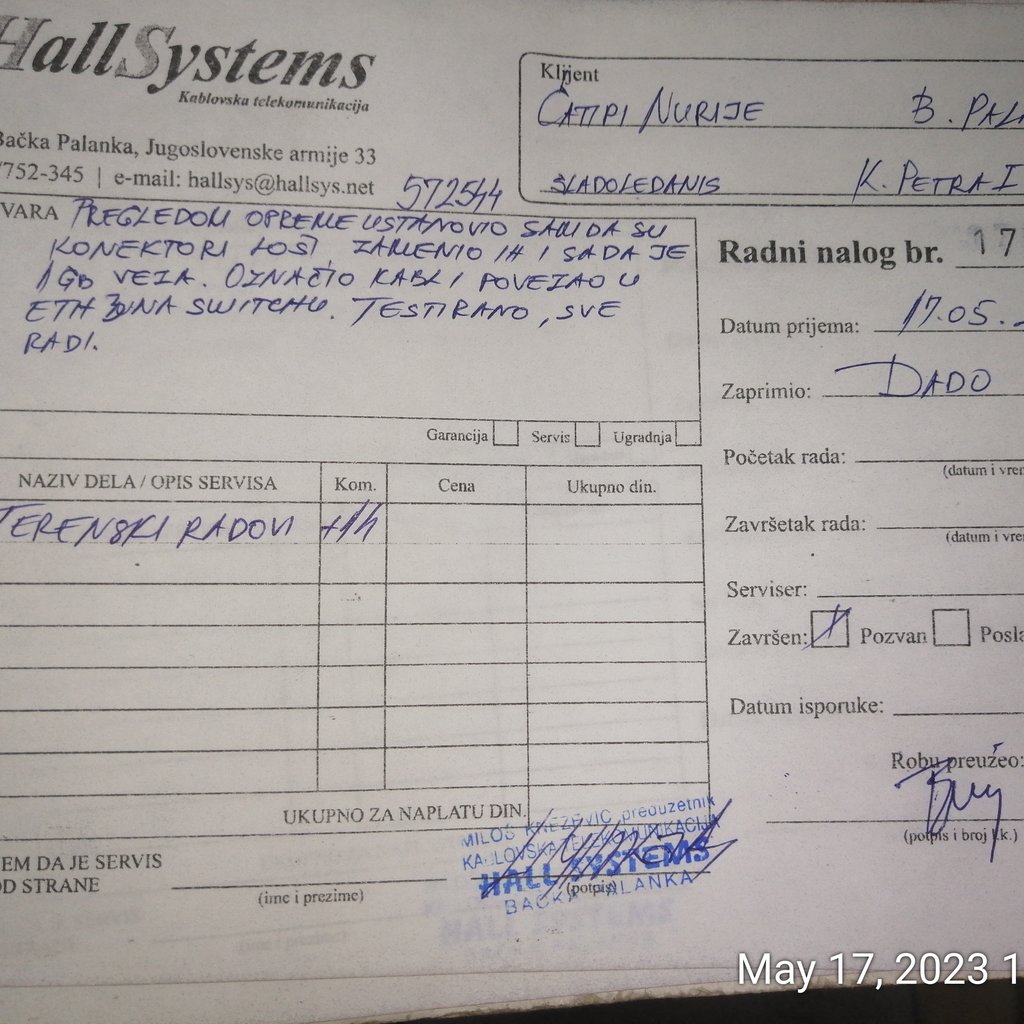 HallSystems
Kablovska telekomunikacija
Bačka Palanka, Jugoslovenske armije 33
752-345 | e-mail: hallsys@hallsys.net
Klijent
NURIJE B. PALA
SLADOLEDANIS K. PETRA I
572544
VARA PREGLEDOM OPREME USTANOVIO SAM DA SU
KONEKTORI LOŠI, ZAMENIO IH I SADA JE
1GB VEZA. OZNAČIO KABL I POVEZAO U
ETH NA SWITCHU. TESTIRANO, SVE
RADI.
Garancija Servis Ugradnja
Radni nalog br. 17
Datum prijema: 17.05.
Zaprimio: DADO
Početak rada:
(datum i vre
Završetak rada:
(datum i vre
Serviser:
Završen: Pozvan Posla
Datum isporuke:
Robu preuzeo:
(potpis i broj l.k.)
NAZIV DELA / OPIS SERVISA Kom. Cena Ukupno din.
TERENSKI RADOVI +1h
UKUPNO ZA NAPLATU DIN.
EM DA JE SERVIS
OD STRANE
(ime i prezime)
(potpis)
MILOŠ KNEŽEVIĆ preduzetnik
KABLOVSKA TELEKOMUNIKACIJA
HALL SYSTEMS
BAČKA PALANKA
May 17, 2023 1